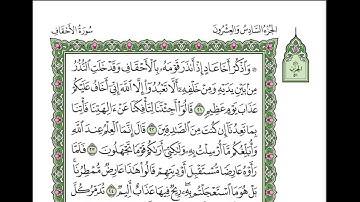 الجزء السادس والعشرون
سورة الأحقاف
۞ وَٱذۡكُرۡ أَخَا عَادٍ إِذۡ أَنذَرَ قَوۡمَهُۥ بِٱلۡأَحۡقَافِ وَقَدۡ خَلَتِ ٱلنُّذُرُ
مِنۢ بَيۡنِ يَدَيۡهِ وَمِنۡ خَلۡفِهِۦٓ أَلَّا تَعۡبُدُوٓاْ إِلَّا ٱللَّهَ إِنِّيٓ أَخَافُ عَلَيۡكُمۡ
عَذَابَ يَوۡمٍ عَظِيمٖ ٢١ قَالُوٓاْ أَجِئۡتَنَا لِتَأۡفِكَنَا عَنۡ ءَالِهَتِنَا فَأۡتِنَا
بِمَا تَعِدُنَآ إِن كُنتَ مِنَ ٱلصَّٰدِقِينَ ٢٢ قَالَ إِنَّمَا ٱلۡعِلۡمُ عِندَ ٱللَّهِ
وَأُبَلِّغُكُم مَّآ أُرۡسِلۡتُ بِهِۦ وَلَٰكِنِّيٓ أَرَىٰكُمۡ قَوۡمٗا تَجۡهَلُونَ ٢٣ فَلَمَّا
رَأَوۡهُ عَارِضٗا مُّسۡتَقۡبِلَ أَوۡدِيَتِهِمۡ قَالُواْ هَٰذَا عَارِضٞ مُّمۡطِرُنَاۚ
بَلۡ هُوَ مَا ٱسۡتَعۡجَلۡتُم بِهِۦۖ رِيحٞ فِيهَا عَذَابٌ أَلِيمٞ ٢٤ تُدَمِّرُ كُلَّ